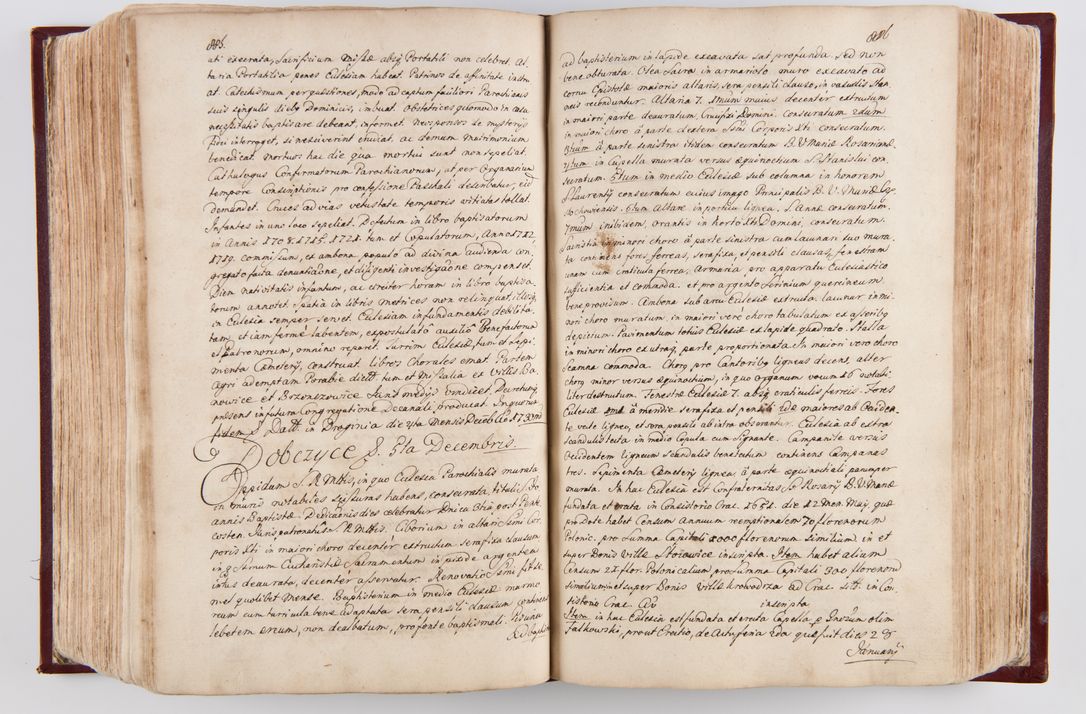 885.
ati exserata, Sacrificium Missæ absq Portatili non celebret. Al-
taria Portatilia penes Ecclesiam habeat. Patrinos de affinitate instru
at. Catechismum per quæstiones, modo ad captum faciliori Parochianos
suos singulis diebs Dominicis, imbuat. Obstetrices quomodo in casu
necessitatis baptisare debeant, informet. Neosponsos de mysterijs
Fidei interroget, si nescíverint erudiat. ac demum Matrimonium
benedicat. Mortuos hac die qua mortui sunt non sepeliat.
Cathalogus Confirmatorum Parochianorum, ut per Organarium
tempore Conscriptionis pro confessione Paschali describatur, eid
demandet. Cruces ad vias vetustate temporis vitiatas tollat.
Infantes in uno loco sepeliat. Defectum in libro baptisatorum
in Annis 1708. 1715. 1721. tum et Copulatorum, Anno 1712,
1719. commissum, ex ambona, populo ad divina audienda con,
gregato facta denuntiatione, et diligenti investigatione compenset.
Diem nativitatis infantum, ac Leviter horam in libro baptisa-
torum annotet. Spatia in libris metrices non relinquat, illosq
in Ecclesia semper servet. Ecclesiam in fundamentis debilita-
tam, et iam fermè labentem, expostulatô auxiliô Benefactorum
et Patronorum, omninò reparet. Surrim Ecclesiæ, tum et Sepi-
menta Cæmeterij, construat. Libros Chorales emat. Partem
Agri ademptam Porabie dictt. tum et Missalia ex Villis Ba,
nowice et Brzonczowice Juris medijs vindicet Decretumq
præsens in futura Congregatione Decanali producat. In quorum
fidem &. Datt. in Droginia die 4ta Mensis Decēbris 1730mo
Dobczyce &. 5ta Decembris.
Oppidum S. R. Mttis, in quo Ecclesia Parochialis murata
in muris notabiles scissuras habens, consecrata, tituli S. Jo-
annis Baptistæ. Dedicationis dies celebratur Dnica 3tia post Pente
costen. Juris patronatus S. R. Mttis. Ciborium in altari Ssmi Cor,
poris Xti in maiori choro decentèr exstructum serafixa clausum
in q Ssmum Eucharistiæ Sacramentum in pixide argentea
intus deaurata, decentèr asservatur. Renovatio Ssmi fit se-
mel quolibet Mense. Baptisterium in medio Ecclesiæ marmo
reum cum turricula bene adaptata sera pensili clausum continens
lebetem æreum, non dealbatum, pro fonte baptismali. Piscina
Ad baptist
886
ad baptisterium in lapide excavata sat profunda. Sed non
bene obturata. Olea Sacra in armariolo muro excavato ad
cornu Epistolæ maioris altaris, sera pensili clauso, in vasculis stan,
neis reconduntur. Altaria 7. Imum maius decentèr extructum
in maiori parte deauratum, Crucifixi Domini. consecratum. 2dum
in maiori choro à parte dextera Ssmi Corporis Xti consecratum.
3tium à parte sinistra itidem consecratum B. V. Mariæ Rosarianæ.
4tum in Capella murata versus æquinoctium S. Stanislai con,
secratum. 5tum in medio Ecclesiæ sub columna in honorem
S. Laurentij consecratum cuius imago Principalis B. V. Mariæ Czę
stochowiensis. 6tum Altare in porticu lignea. S. Annæ consecratum.
7mum inibidem, orantis in horto Xti Domini, consecratum.
Sacristia in minori choro à parte sinistra cum lacunari suo mura,
ta continens fores ferreas, serafixa, et pensili clausas, fenestram
unam cum craticula ferrea, Armaria pro apparatu Ecclesiastico
sufficientia et comoda. et pro argento Scrinium quercineum
bene provisum. Ambona sub arcu Ecclesiæ extructa. lacunar in mi,
nori choro muratum, in maiori verò choro tabulatum ex asseribq
depictum. Pavimentum totius Ecclesiæ ex lapide quadrato. Stalla
in minori choro ex utraq parte proportionata. In maiori verò choro
Scamna commoda. Chorq pro Cantoribq ligneus decens, alter
chorq minor versus æquinoctium, in quo organum vocum 16 notabi
liter destructum. Fenestræ Ecclesiæ 7. absq craticulis ferreis. Fores
Ecclesiæ à meridie serafixa et pensili 2dæ maiores ab Occiden-
te valde ligneæ, et sera pensili ab intra obserantur. Ecclesia ab extra
scandulis tecta in medio Cupula cum Signante. Campanile versus
Occidentem ligneum scandulis benetectum continens Campanas
tres. Sepimenta Cæmeterij lignea à parte æquinoctiali parumper
murata. In hac Ecclesia est Confraternitas Ss. Rosarij B. V. Mariæ
fundata et erecta in Consistorio Crac. 1651. die 12 Men. Maij, quæ
pro dote habet Censum Annuum reemptionalem 70 florenorum
Polonic. pro Summa Capitali 1000 florenorum similium in et
super Bonis Villæ Stoiowice inscripta. Item habet alium
Censum 21 flor. Polonicalium pro summa Capitali 300 florenorū
similium in et super Bonis Villæ Krowodrza ad Crac. Sitt. in Con,
sistorio Crac. inscripta
Item in hac Ecclesia est fundata et erecta Capella p Gnosum olim
Falkowski, prout Erectio, de Actu feria 2da quæ fuit dies 28
Januarij